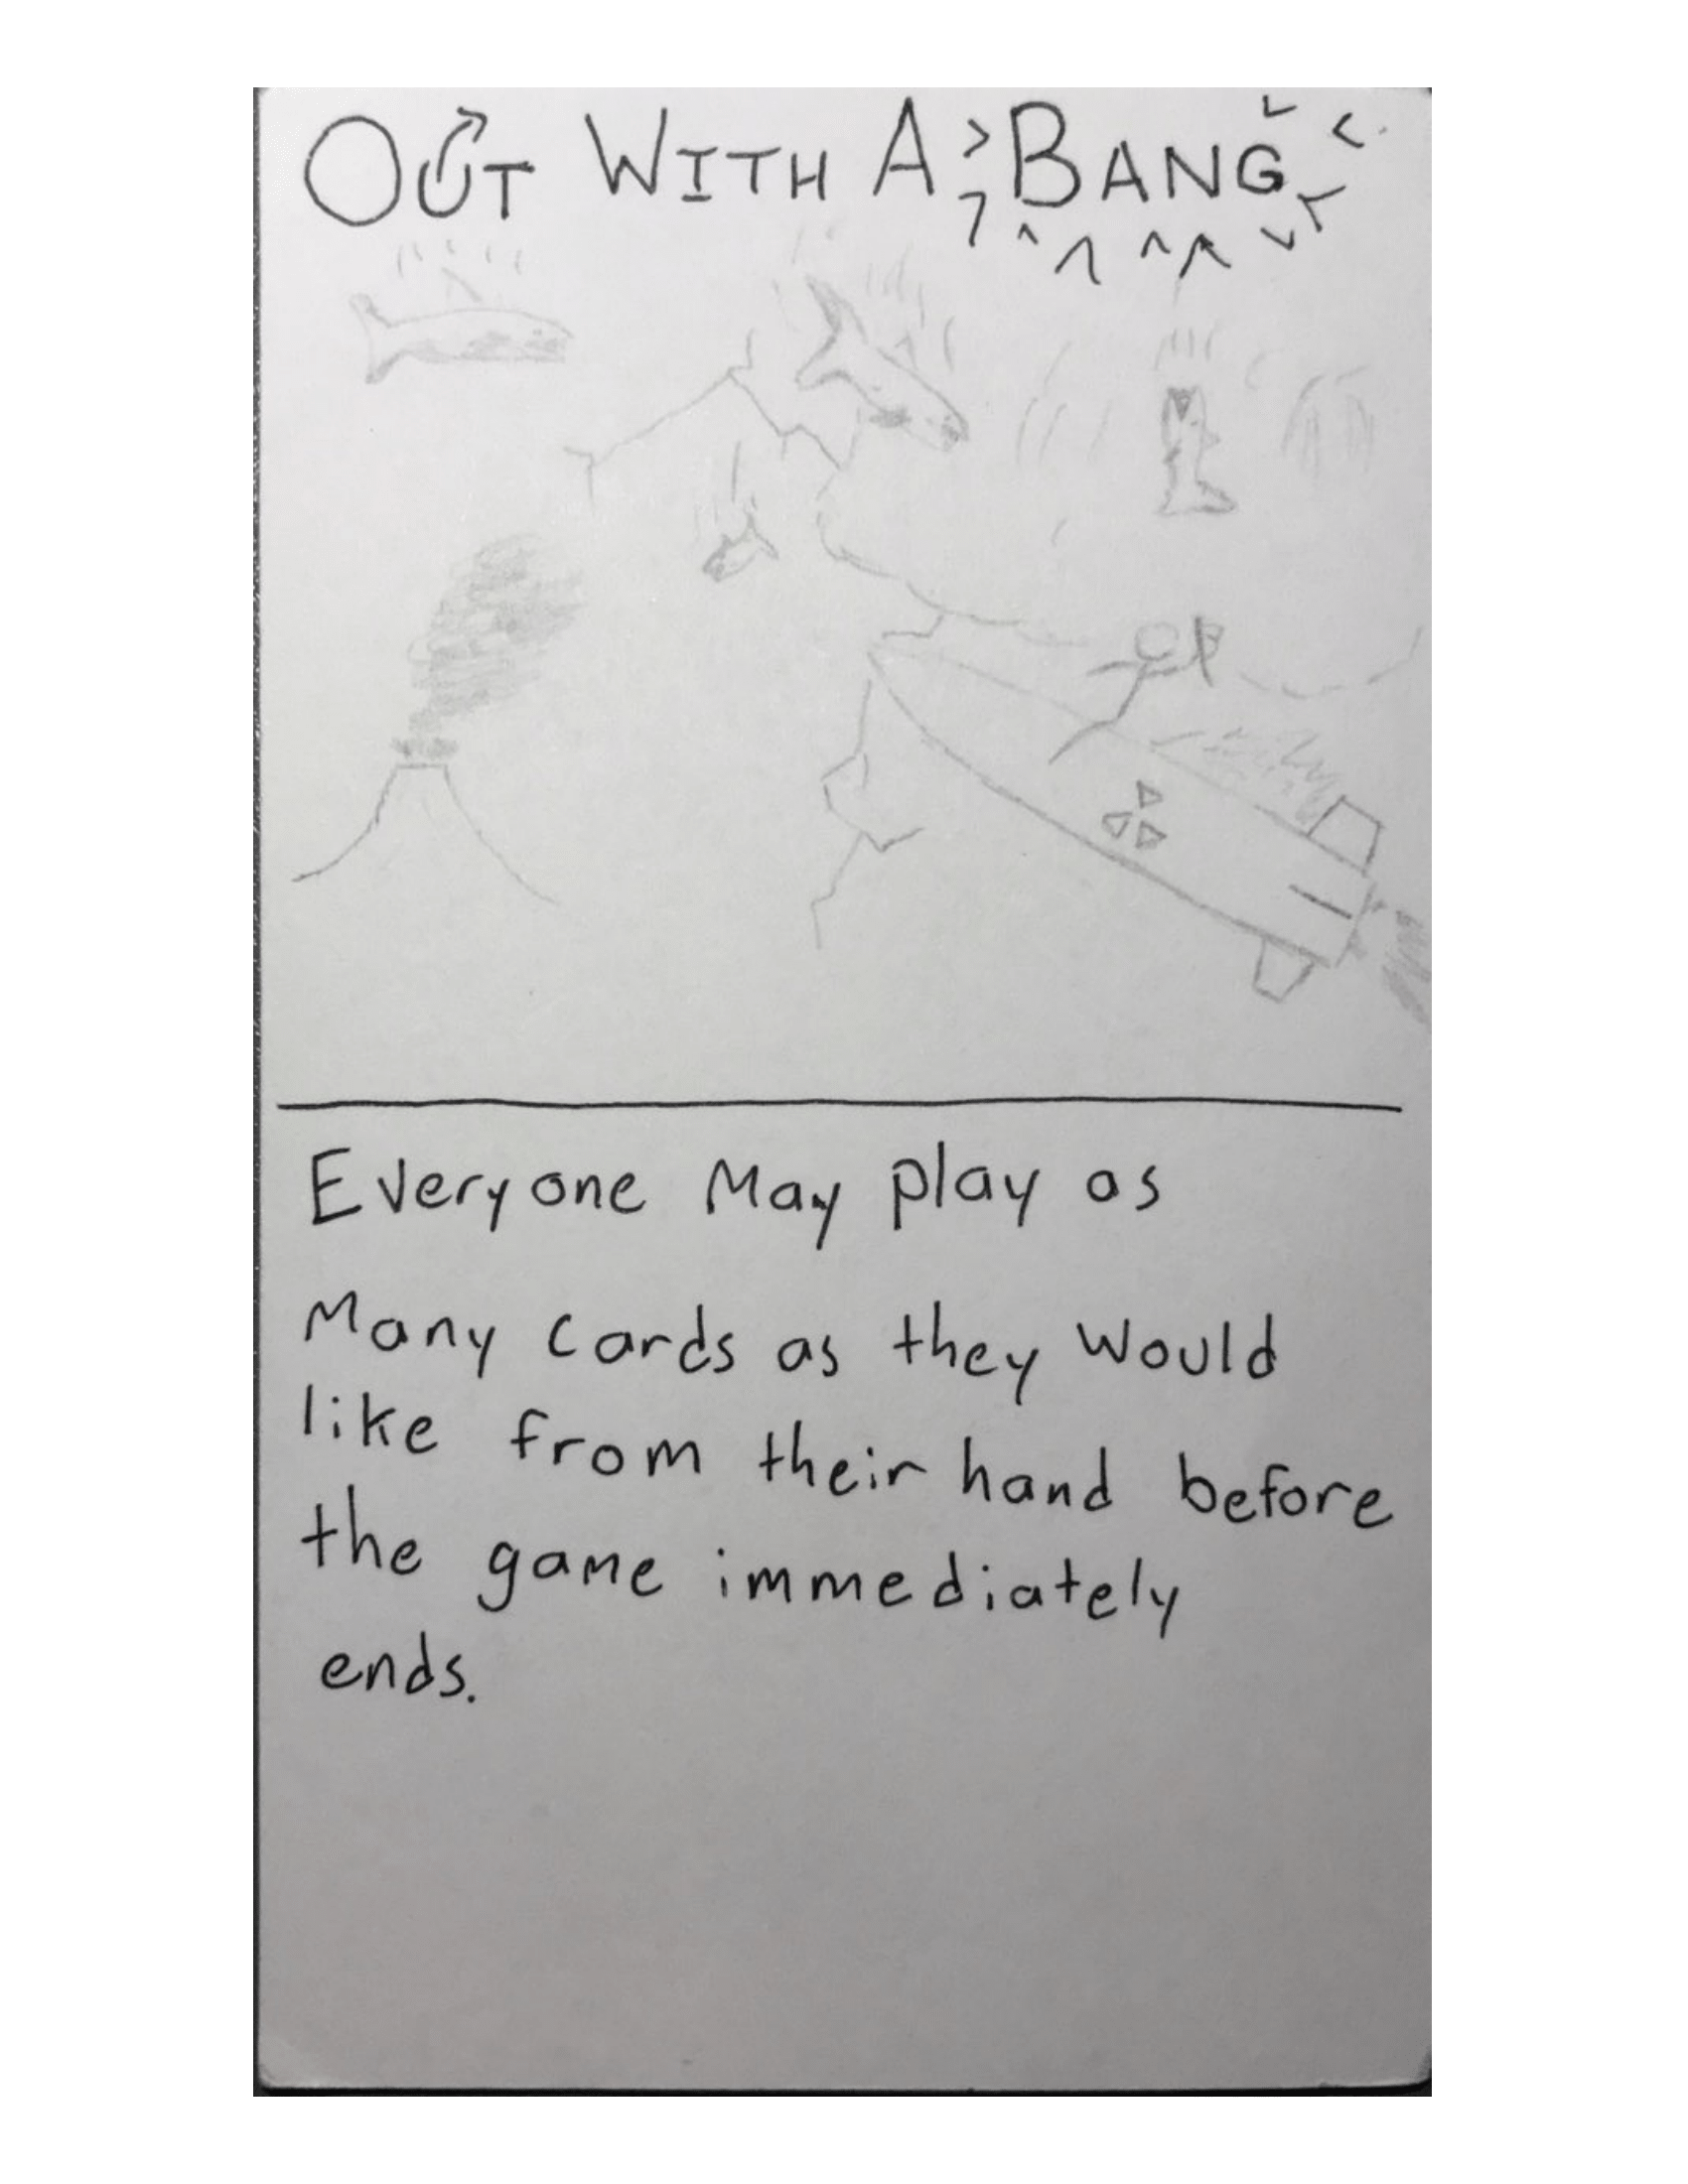 OUT WITH A BANG
Everyone May play as
Many cards as they would
like from their hand before
the game immediately
ends.